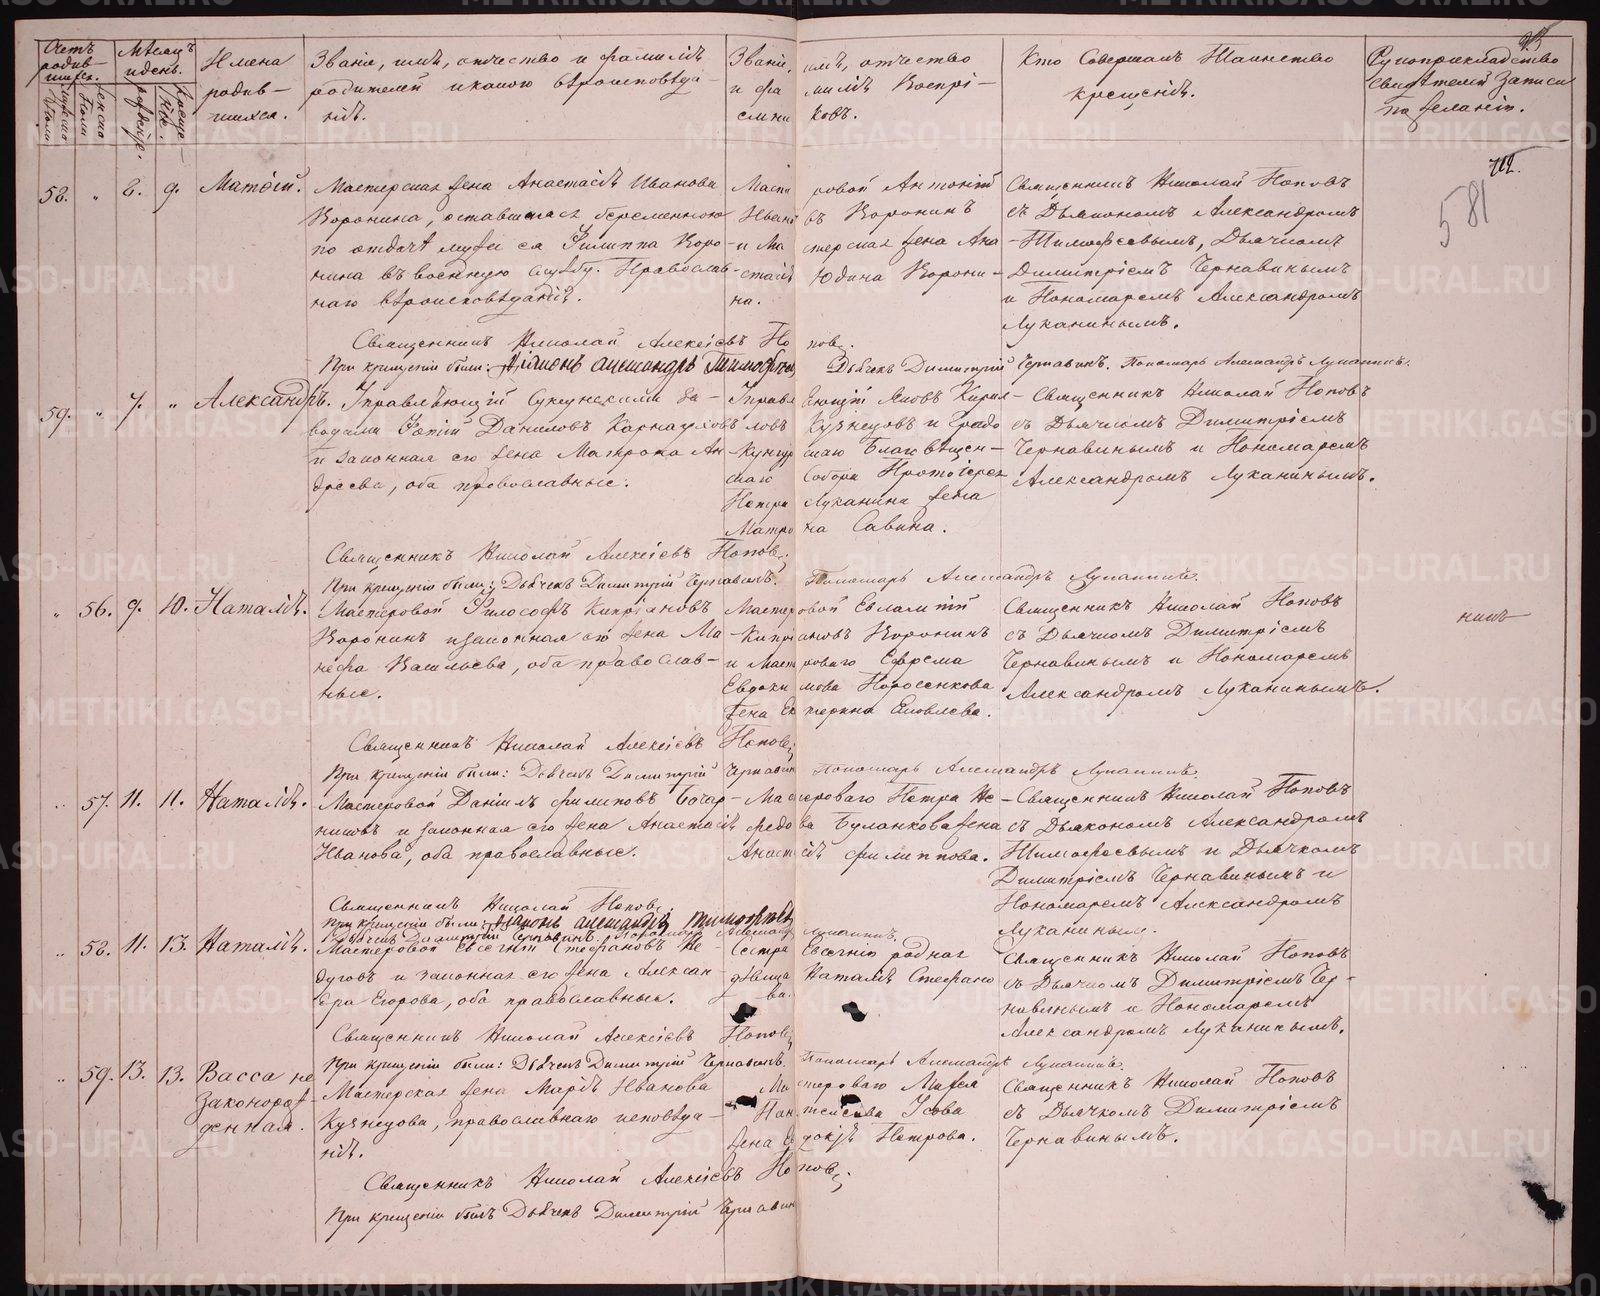 Счетъ родившихся.
Мужеска пола.
Женска пола.
Мѣсяцъ и день.
рожденія.
крещенія.
Имена родив-
шихся.
Званіе, имя, отчество и фамилія
родителей и какого вѣроисповѣда-
нія.
Званіе, имя, отчество
и фамилія Воспрі-
емниковъ.
Кто Совершалъ Таинство
крещенія.
Рукоприкладство
свидѣтелей записи
по желанію.
712.
581
58. " 6. 9. Матѳій.
Мастерская жена Анастасія Иванова
Воронина, оставшаяся беременною
по отдачѣ мужа ея Филиппа Воро-
нина въ военную службу. Православ-
наго вѣроисповѣданія.
Мастеровой Антоній
Ивановъ Воронинъ
и Мастерская жена Ана-
стасія Юдина Ворони-
на.
Священникъ Николай Поповъ
съ Дьякономъ Александромъ
Тимофеевымъ, Дьячкомъ
Димитріемъ Чернавинымъ
и Пономаремъ Александромъ
Луканинымъ.
Священникъ Николай Алексіевъ Поповъ.
При крещеніи были: Діаконъ Александръ Тимофѣевъ Дьячекъ Димитрій Чернавинъ. Пономарь Александръ Луканинъ.
59. " 7. " Александръ.
Управляющій Суксунскими за-
водами Фотій Даниловъ Карнауховъ
и законная его жена Матрона Ан-
дреева, оба православные.
Управляющій Яковъ Кирил-
ловъ Кузнецовъ и Градо-
Кунгурскаго Благовѣщен-
скаго Собора Протоіерея
Петра Луканина жена
Матрона Савина.
Священникъ Николай Поповъ
съ Дьячкомъ Димитріемъ
Чернавинымъ и Пономаремъ
Александромъ Луканинымъ.
Священникъ Николай Алексіевъ Поповъ.
При крещеніи были: Дьячекъ Димитрій Чернавинъ. Пономарь Александръ Луканинъ.
" 56. 9. 10. Наталія.
Мастеровой Философъ Кипріановъ
Воронинъ и законная его жена Ма-
нефа Васильева, оба православ-
ные.
Мастеровой Евлампій
Кипріановъ Воронинъ
и Мастероваго Ефрема
Евдокимова Поросенкова
жена Екатерина Яковлева.
Священникъ Николай Поповъ
съ Дьячкомъ Димитріемъ
Чернавинымъ и Пономаремъ
Александромъ Луканинымъ.
Священникъ Николай Алексіевъ Поповъ.
При крещеніи были: Дьячекъ Димитрій Чернавинъ Пономарь Александръ Луканинъ.
" 57. 11. 11. Наталія.
Мастеровой Даніилъ Филиповъ Бочар-
никовъ и законная его жена Анастасія
Иванова, оба православные.
Мастероваго Петра Не-
федова Буланкова жена
Анастасія Филиппова.
Священникъ Николай Поповъ
съ Дьякономъ Александромъ
Тимофеевымъ и Дьячкомъ
Димитріемъ Чернавинымъ и
Пономаремъ Александромъ
Луканинымъ.
Священникъ Николай Поповъ.
При крещеніи были: Діаконъ Александръ Тимофѣевъ
Дьячекъ Димитрій Чернавинъ. Пономарь Александръ Луканинъ.
" 58. 11. 13. Наталія.
Мастеровой Евсегній Стефановъ Не-
дуговъ и законная его жена Алексан-
дра Егорова, оба православные.
Сестра Евсегнія родная
дѣвица Наталія Стефано-
ва.
Священникъ Николай Поповъ
съ Дьячкомъ Димитріемъ Чер-
навинымъ и Пономаремъ
Александромъ Луканинымъ.
Священникъ Николай Алексіевъ Поповъ.
При крещеніи были: Дьячекъ Димитрій Чернавинъ. Пономарь Александръ Луканинъ.
" 59. 13. 13. Васса не-
законорож-
денная.
Мастерская жена Марія Иванова
Кузнецова, православнаго исповѣда-
нія.
Мастероваго
Усова
жена Петрова.
Священникъ Николай Поповъ
съ Дьячкомъ Димитріемъ
Чернавинымъ.
Священникъ Николай Алексіевъ Поповъ.
При крещеніи былъ Дьячекъ Димитрій Чернавинъ